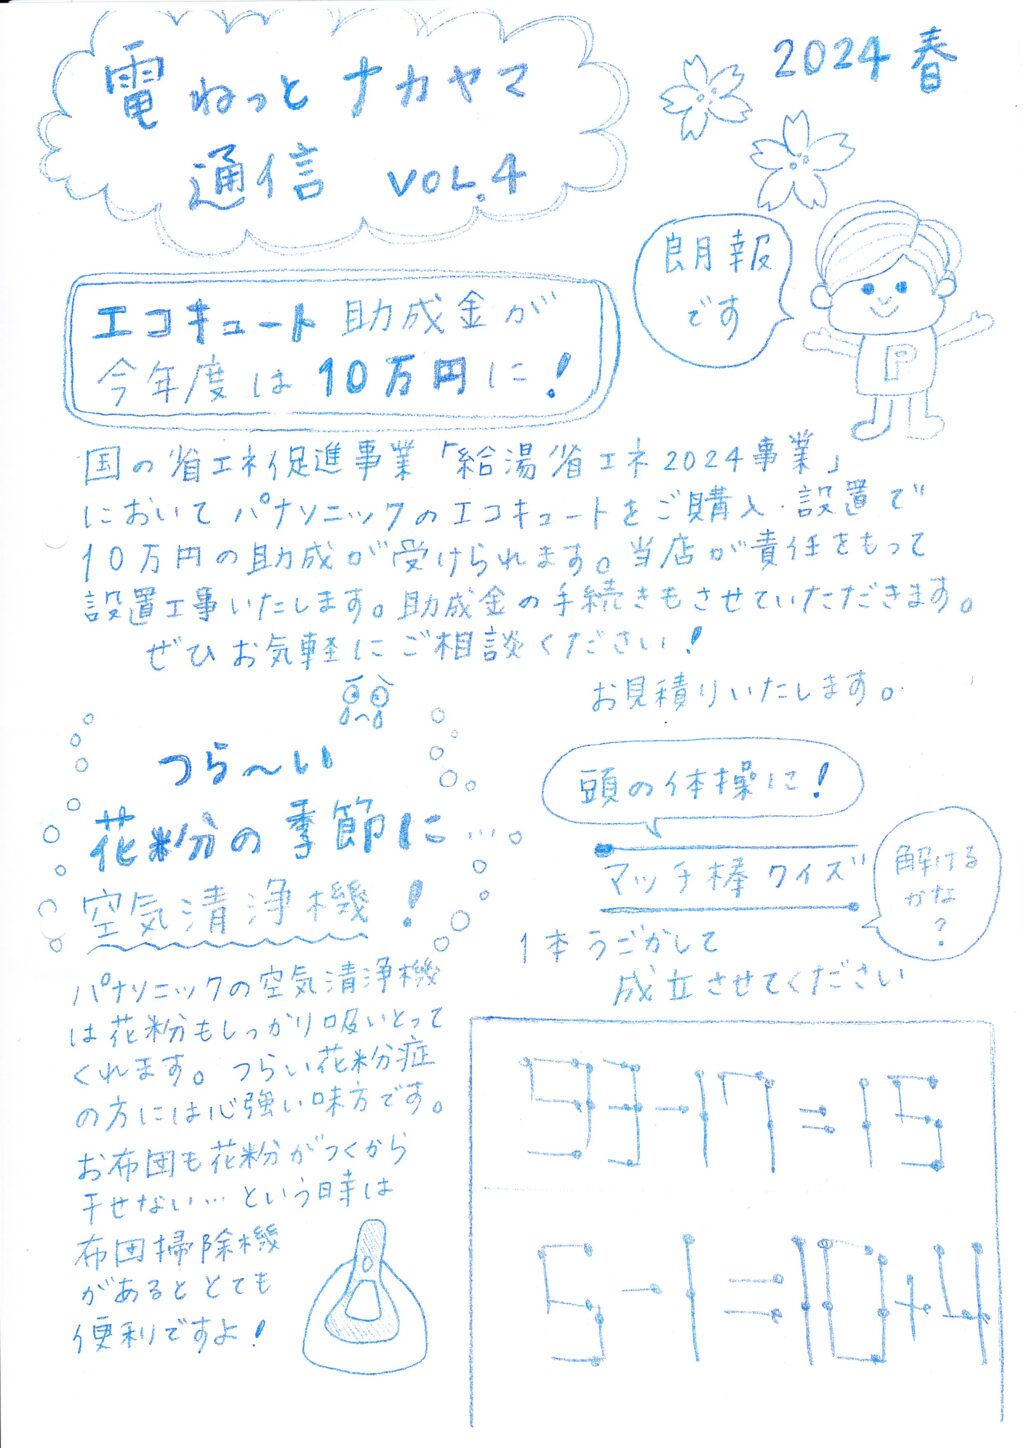 電ねっとナカヤマ
通信 VOL.4
2024 春
朗報
です
P
エコキュート助成金が
今年度は10万円に!
国の省エネ促進事業「給湯省エネ2024事業」
においてパナソニックのエコキュートをご購入・設置で
10万円の助成が受けられます。当店が責任をもって
設置工事いたします。助成金の手続きもさせていただきます。
ぜひお気軽にご相談ください!
お見積りいたします。
つら〜い
花粉の季節に…。
空気清浄機!
パナソニックの空気清浄機
は花粉もしっかり吸いとって
くれます。つらい花粉症
の方には心強い味方です。
お布団も花粉がつくから
干せない…という時は
布団掃除機
があるととても
便利ですよ!
頭の体操に!
マッチ棒クイズ
解ける
かな
?
1本うごかして
成立させてください
93-17=15
5-1=10+4